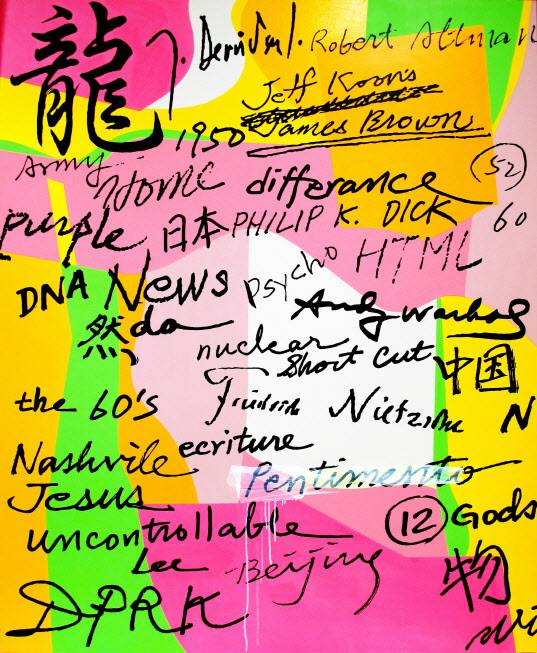 龍 J. Derrida 1. Robert Altman
Jeff Koons
James Brown
1950
Army
Home differance 52
purple 日本 PHILIP K. DICK 60
psycho HTML
DNA News
然 da Andy Warhol
nuclear
Short Cut 中国
the 60's Friedrich Nietzsche N
Nashvile ecriture
Pentimento
Jesus
uncontrollable 12 Gods
Lee Beijing 物
DPRK